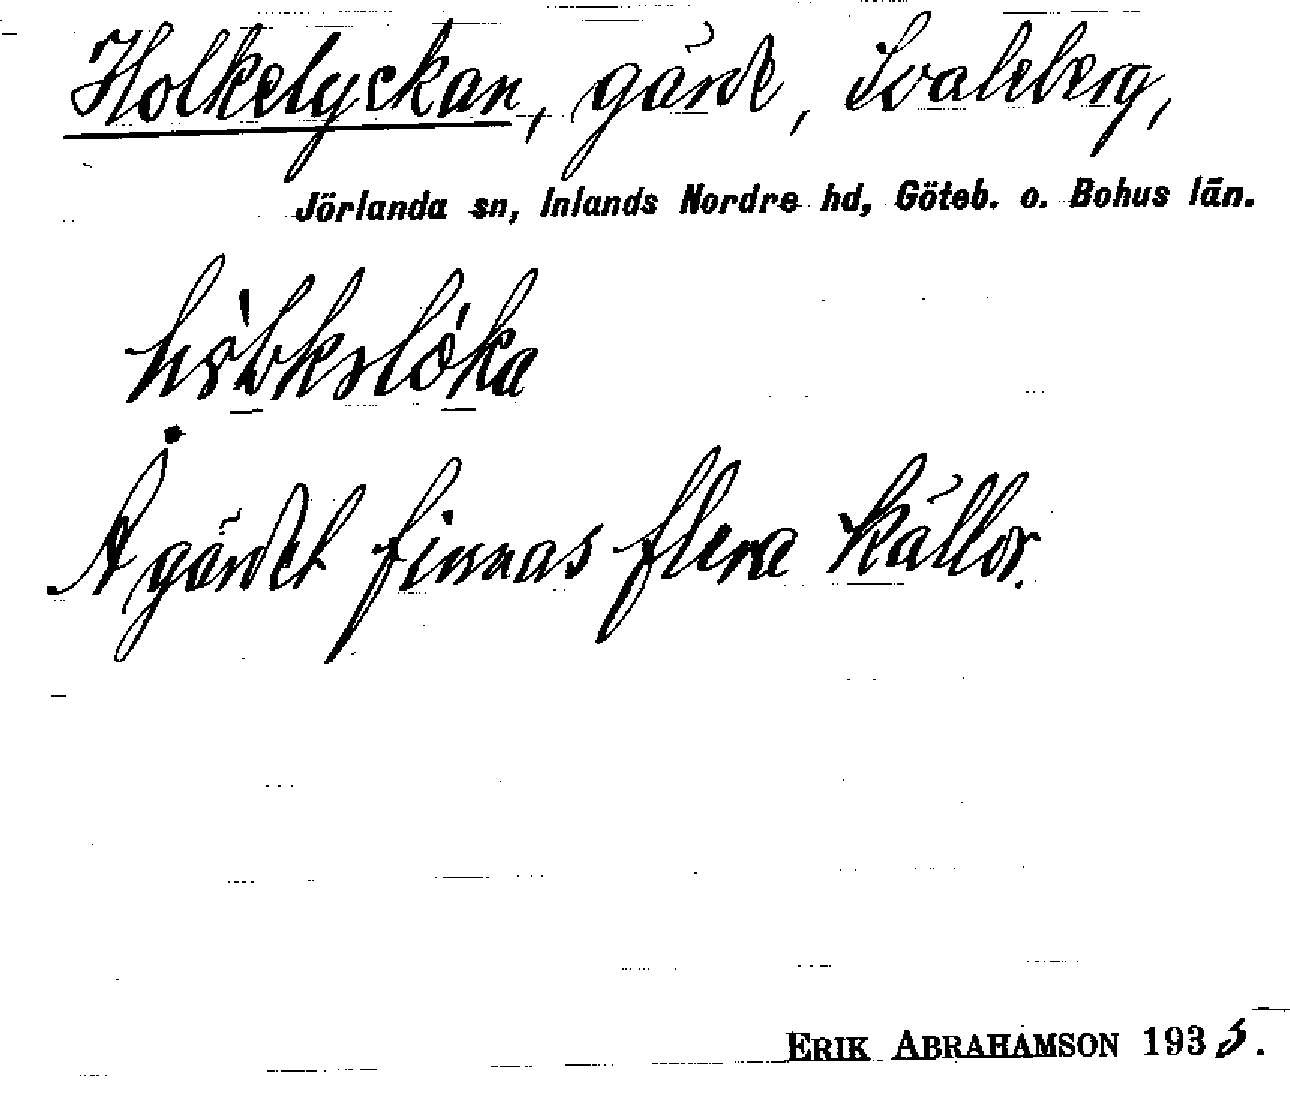 Holkelyckan, gärde, Svaleberg,
Jörlanda sn, Inlands Nordre hd, Göteb. o. Bohus län.
Å gärdet finnas flera källor.
ERIK ABRAHAMSON 1935.